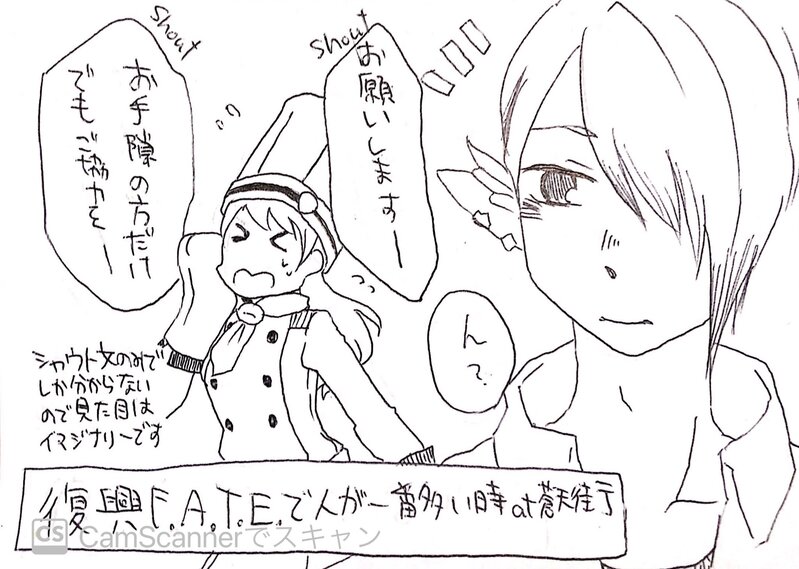 shout
お願いします―
shout
お手隙の方だけ
でもご協力を―
ん?
シャウト文のみで
しか分からない
ので見た目は
イマジナリーです
復興F.A.T.E.で人が一番多い時at蒼天街
CS CamScannerでスキャン